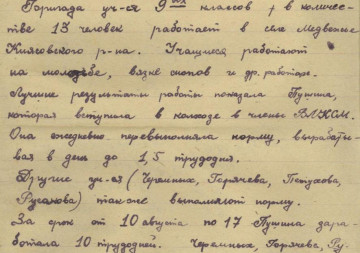 Бригада уч-ся 9ых классов, в количес-
тве 13 человек работает в селе Медвенье
Киясовского р-на. Учащиеся работают
на молотьбе, вязке снопов и др. работах.
Лучшие результаты работы показала Пушина,
которая вступила в колхозе в члены ВЛКСМ.
Она ежедневно перевыполняла норму, вырабаты-
вая в день до 1,5 трудодня.
Другие уч-ся (Черемных, Горячева, Петухова,
Русанова) также выполняют норму.
За срок от 10 августа по 17 Пушина зара-
ботала 10 трудодней. Черемных, Горячева, Ру-